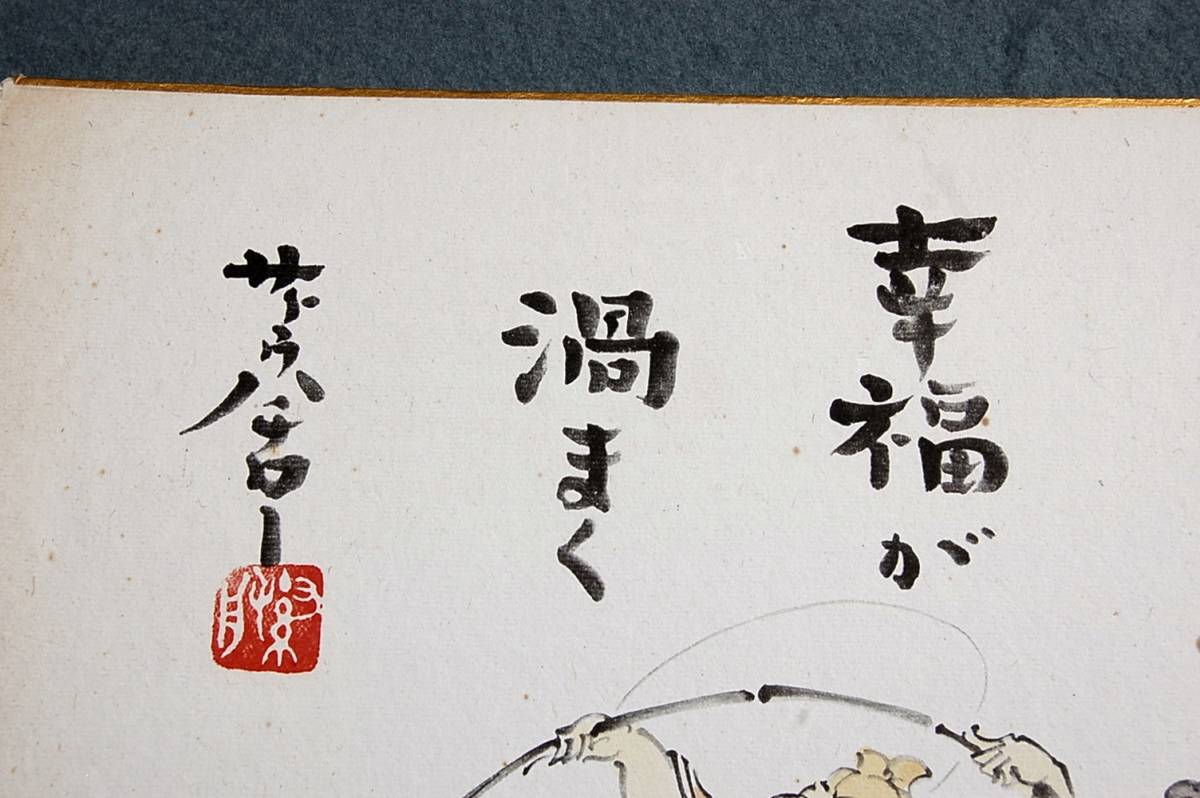 幸福が
渦まく
サトウハチロー